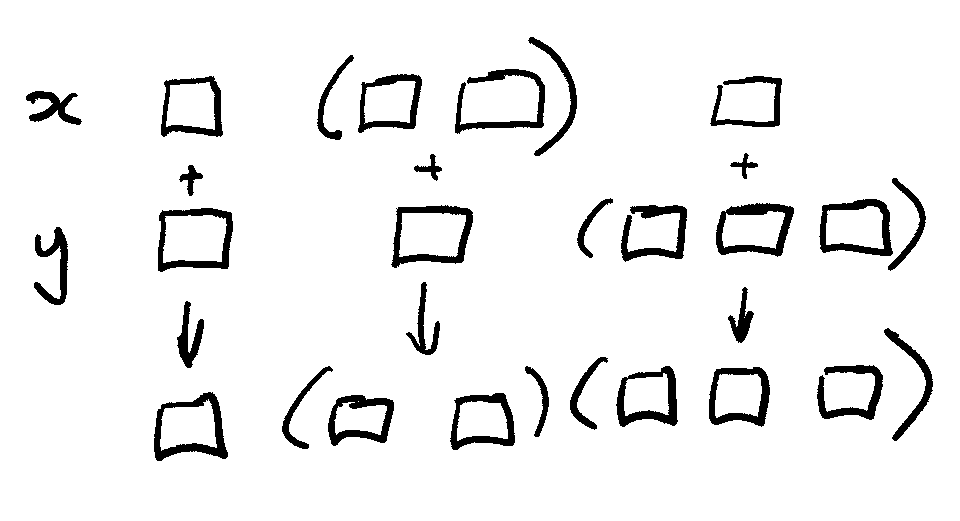 x □ (□ □) □
+ + +
y □ □ (□ □ □)
↓ ↓ ↓
□ (□ □) (□ □ □)